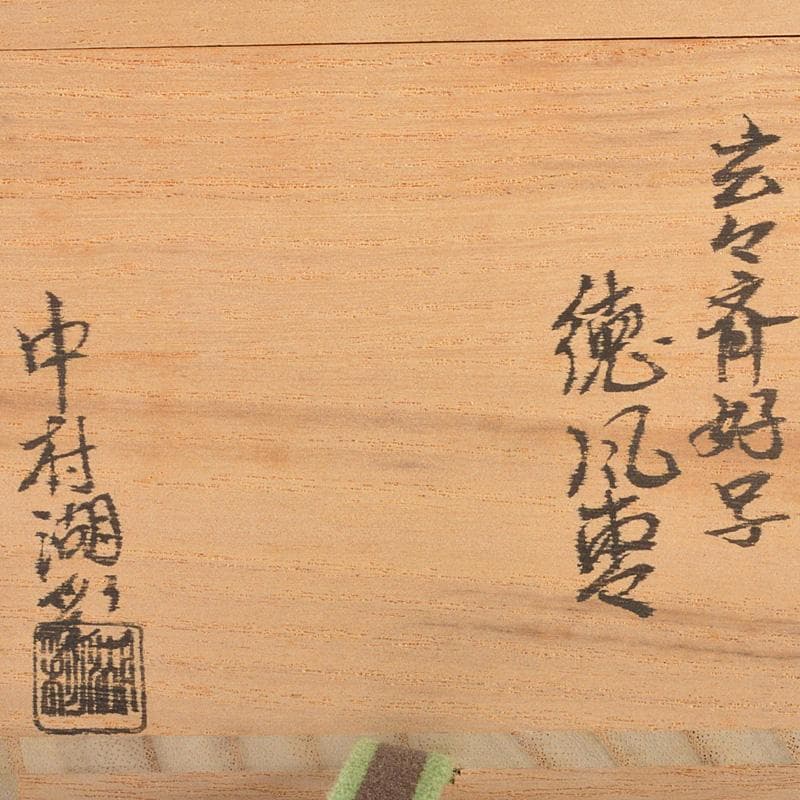 玄々斉好写
徳風棗
中村湖彩